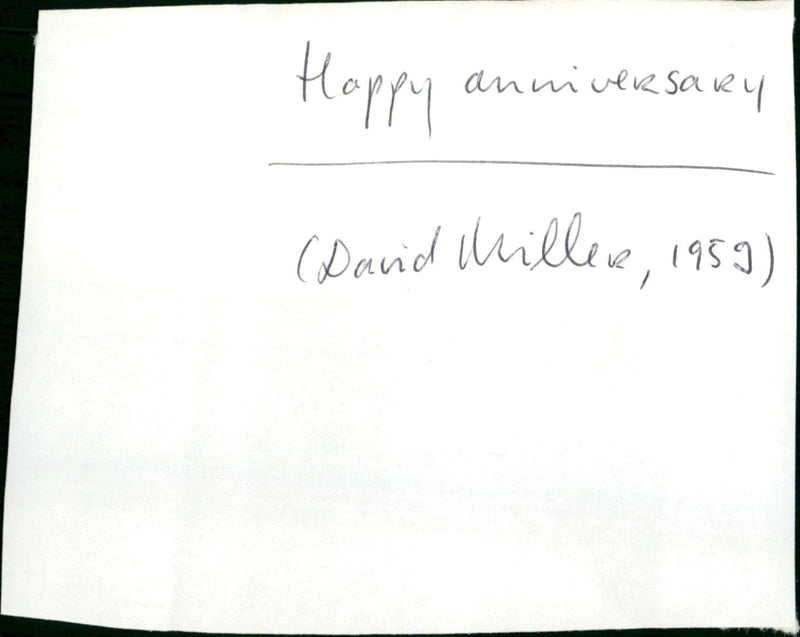 Happy anniversary
(David Miller, 1959)